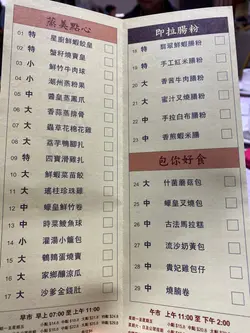 蒸美點心
01 特 星廚鮮蝦餃皇
02 特 蟹籽燒賣皇
03 小 鮮竹牛肉球
04 小 潮州蒸粉粿
05 中 醬皇蒸鳳爪
06 大 香蒜蒸排骨
07 大 蟲草花棉花雞
08 大 荔芋鴨腳扎
09 特 四寶滑雞扎
10 大 鮮蝦菜苗餃
11 大 瑤柱珍珠雞
12 中 蠔皇鮮竹卷
13 中 時菜鯪魚球
14 小 薑湯小麵包
15 大 鵪鶉蛋燒賣
16 中 家鄉釀涼瓜
17 大 沙爹金錢肚
早市 早上 07:00 至 上午 11:00
即拉腸粉
18 特 翡翠鮮蝦腸粉
19 特 手工紅米腸粉
20 大 香茜牛肉腸粉
21 大 蜜汁叉燒腸粉
22 大 手拉白布腸粉
23 中 香煎蝦米腸
包你好食
24 大 什菌蘑菇包
25 中 蠔皇叉燒包
26 中 古法馬拉糕
27 中 流沙奶黃包
28 中 貴妃雞包仔
29 中 燒腩卷
午市 上午 11:00 至 下午 2:00